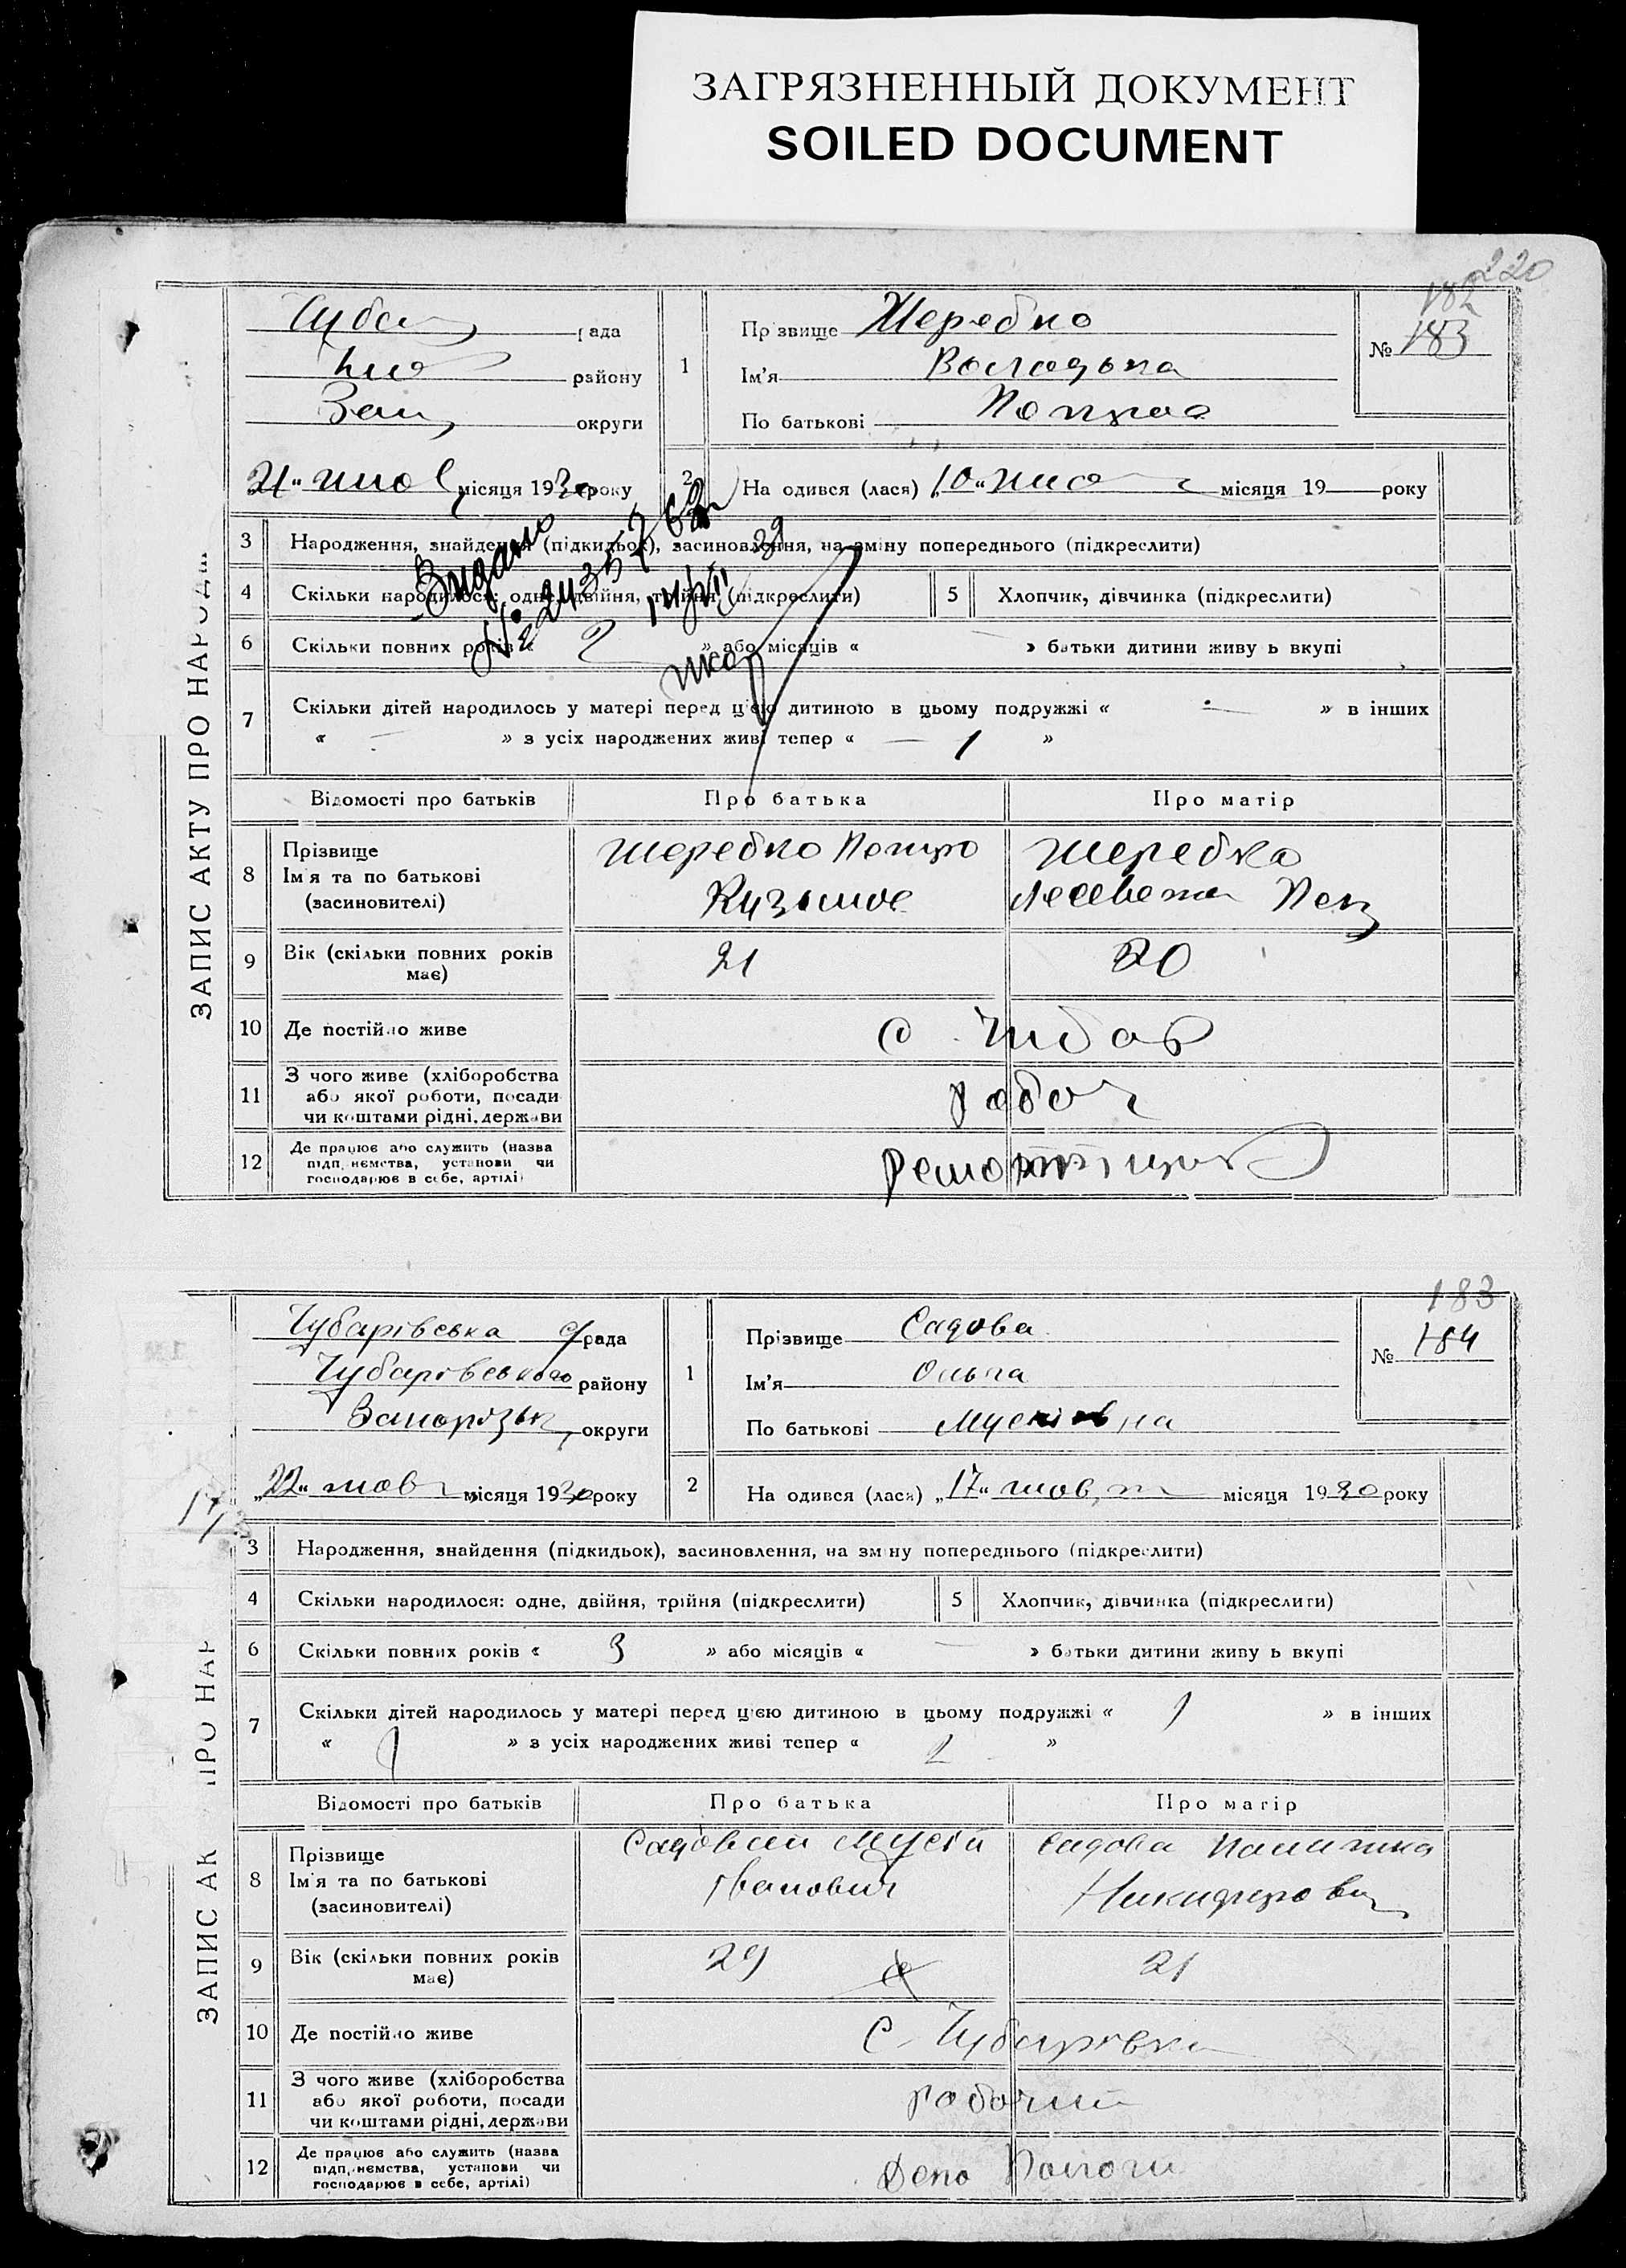 ЗАГРЯЗНЕННЫЙ ДОКУМЕНТ
SOILED DOCUMENT
220
182
ЗАПИС АКТУ ПРО НАРОД
Чуба рада
району
Зап округи
21 " жов місяця 1930 року
1
Прізвище Жеребко
Ім'я Володька
По батькові Петров
№ 183
2
На одився (лася) " 10 " жов місяця 19 — року
3 Народження, знайдення (підкидьок), засиновлення, на зміну попереднього (підкреслити)
Видано
№
4 Скільки народилося: одне, двійня, трійня (підкреслити)
5 Хлопчик, дівчинка (підкреслити)
6 Скільки повних років « 2 » або місяців « — » батьки дитини живу ь вкупі
7 Скільки дітей народилось у матері перед цією дитиною в цьому подружжі « — » в інших
« — » з усіх народжених живі тепер « — 1 »
Відомості про батьків Про батька Про матір
8 Прізвище
Ім'я та по батькові
(засиновителі)
Жеребко Петро
Кузьмов
Жеребка
9 Вік (скільки повних років
має)
21 20
10 Де постійно живе
с. Чубар
11 З чого живе (хліборобства
або якої роботи, посади
чи коштами рідні, держави
робоч
12 Де працює або служить (назва
підприємства, установи чи
господарює в себе, артілі)
183
ЗАПИС АК ПРО НАР
Чубарівська с/рада
Чубарівського району
Запорізьк округи
„ 22 " жовт місяця 1930 року
17/
1
Прізвище Садова
Ім'я Ольга
По батькові Мусіївна
№ 184
2
На одився (лася) „ 17 " жовт місяця 1930 року
3 Народження, знайдення (підкидьок), засиновлення, на зміну попереднього (підкреслити)
4 Скільки народилося: одне, двійня, трійня (підкреслити)
5 Хлопчик, дівчинка (підкреслити)
6 Скільки повних років « 3 » або місяців « — » батьки дитини живу ь вкупі
7 Скільки дітей народилось у матері перед цією дитиною в цьому подружжі « 1 » в інших
« 1 » з усіх народжених живі тепер « 2 »
Відомості про батьків Про батька Про матір
8 Прізвище
Ім'я та по батькові
(засиновителі)
Садовий Мусій
Іванович
Садова
Никифоров
9 Вік (скільки повних років
має)
29 21
10 Де постійно живе
С. Чубарівка
11 З чого живе (хліборобства
або якої роботи, посади
чи коштами рідні, держави
робочий
12 Де працює або служить (назва
підприємства, установи чи
господарює в себе, артілі)
Депо Пологи